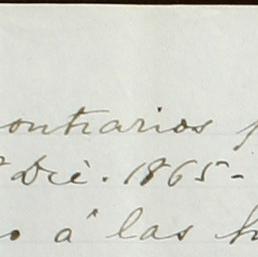 contrarios
Dic. 1865-
á las